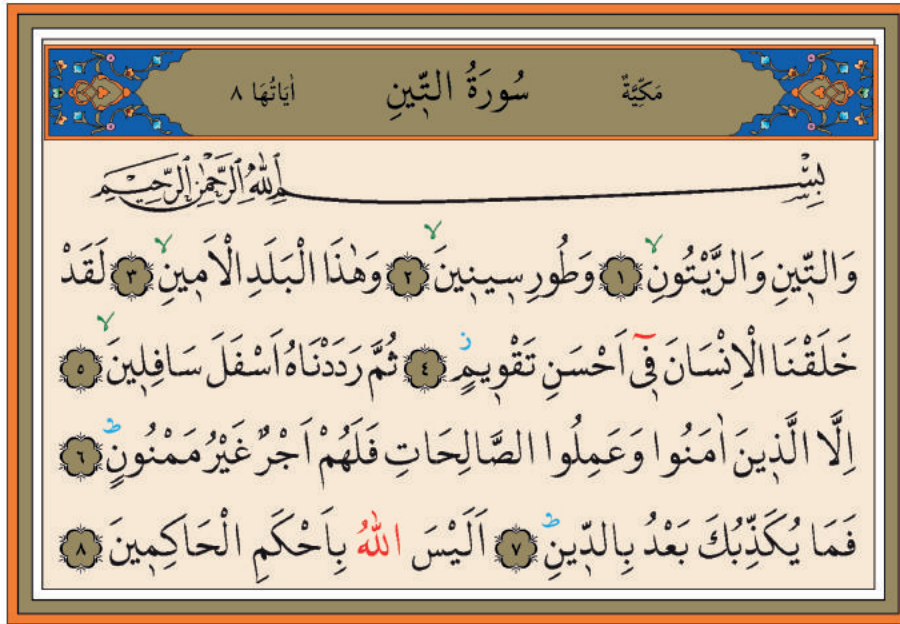 مَكِّيَّةٌ سُورَةُ التّ۪ينِ اٰيَاتُهَا ٨
بِسْمِ اللّٰهِ الرَّحْمٰنِ الرَّحِيمِ
وَالتّ۪ينِ وَالزَّيْتُونِۙ ١ وَطُورِ س۪ين۪ينَۙ ٢ وَهٰذَا الْبَلَدِ الْاَم۪ينِۙ ٣ لَقَدْ
خَلَقْنَا الْاِنْسَانَ ف۪ٓي اَحْسَنِ تَقْو۪يمٍۘ ٤ ثُمَّ رَدَدْنَاهُ اَسْفَلَ سَافِل۪ينَۙ ٥
اِلَّا الَّذ۪ينَ اٰمَنُوا وَعَمِلُوا الصَّالِحَاتِ فَلَهُمْ اَجْرٌ غَيْرُ مَمْنُونٍۜ ٦
فَمَا يُكَذِّبُكَ بَعْدُ بِالدّ۪ينِۜ ٧ اَلَيْسَ اللّٰهُ بِاَحْكَمِ الْحَاكِم۪ينَ ٨